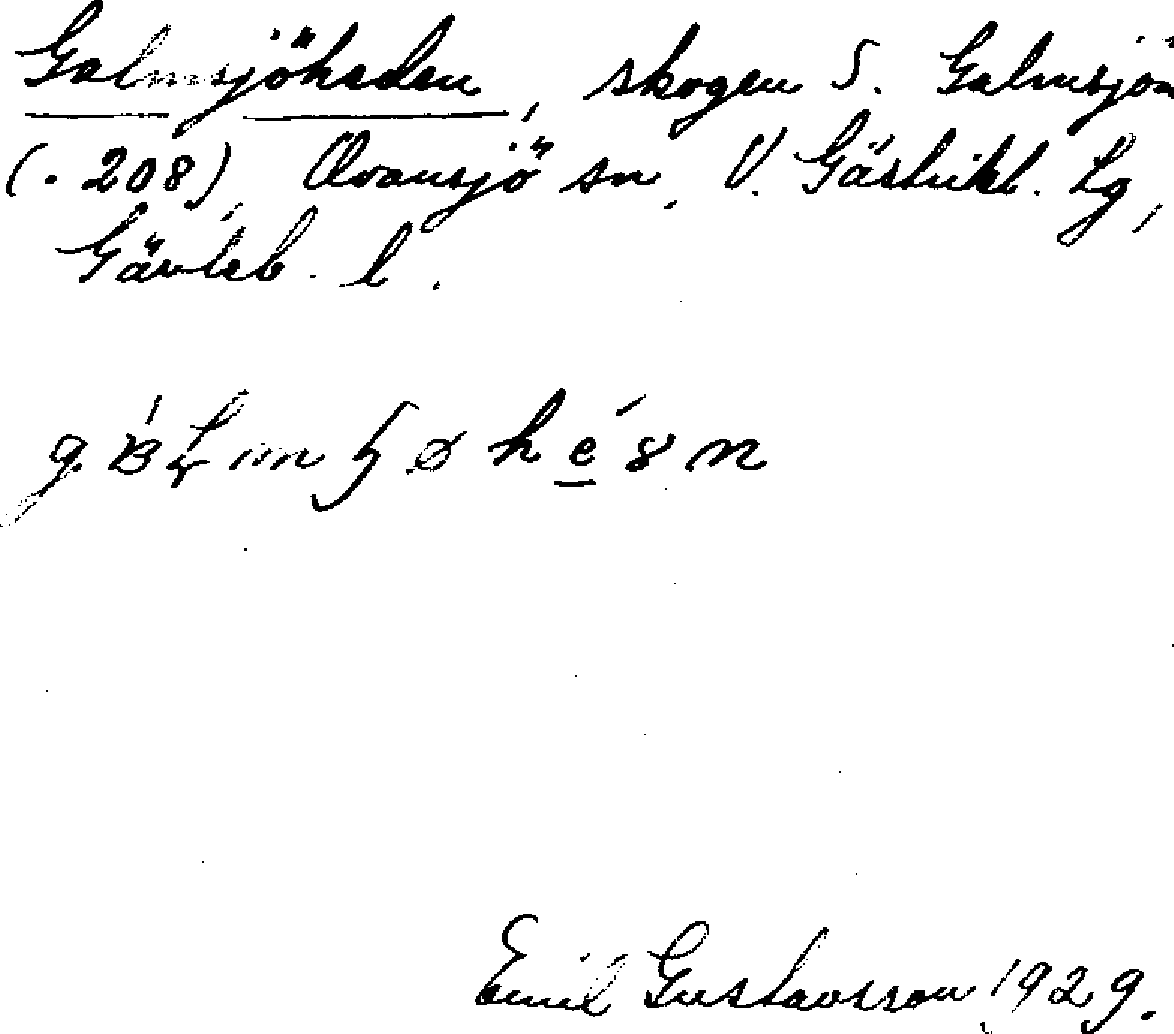 Galmsjöheden, skogen S. Galmsjön
(. 208), Ovansjö sn, V. Gästrikl. tg,
Gävleb. l.
Emil Gustavsson 1929.